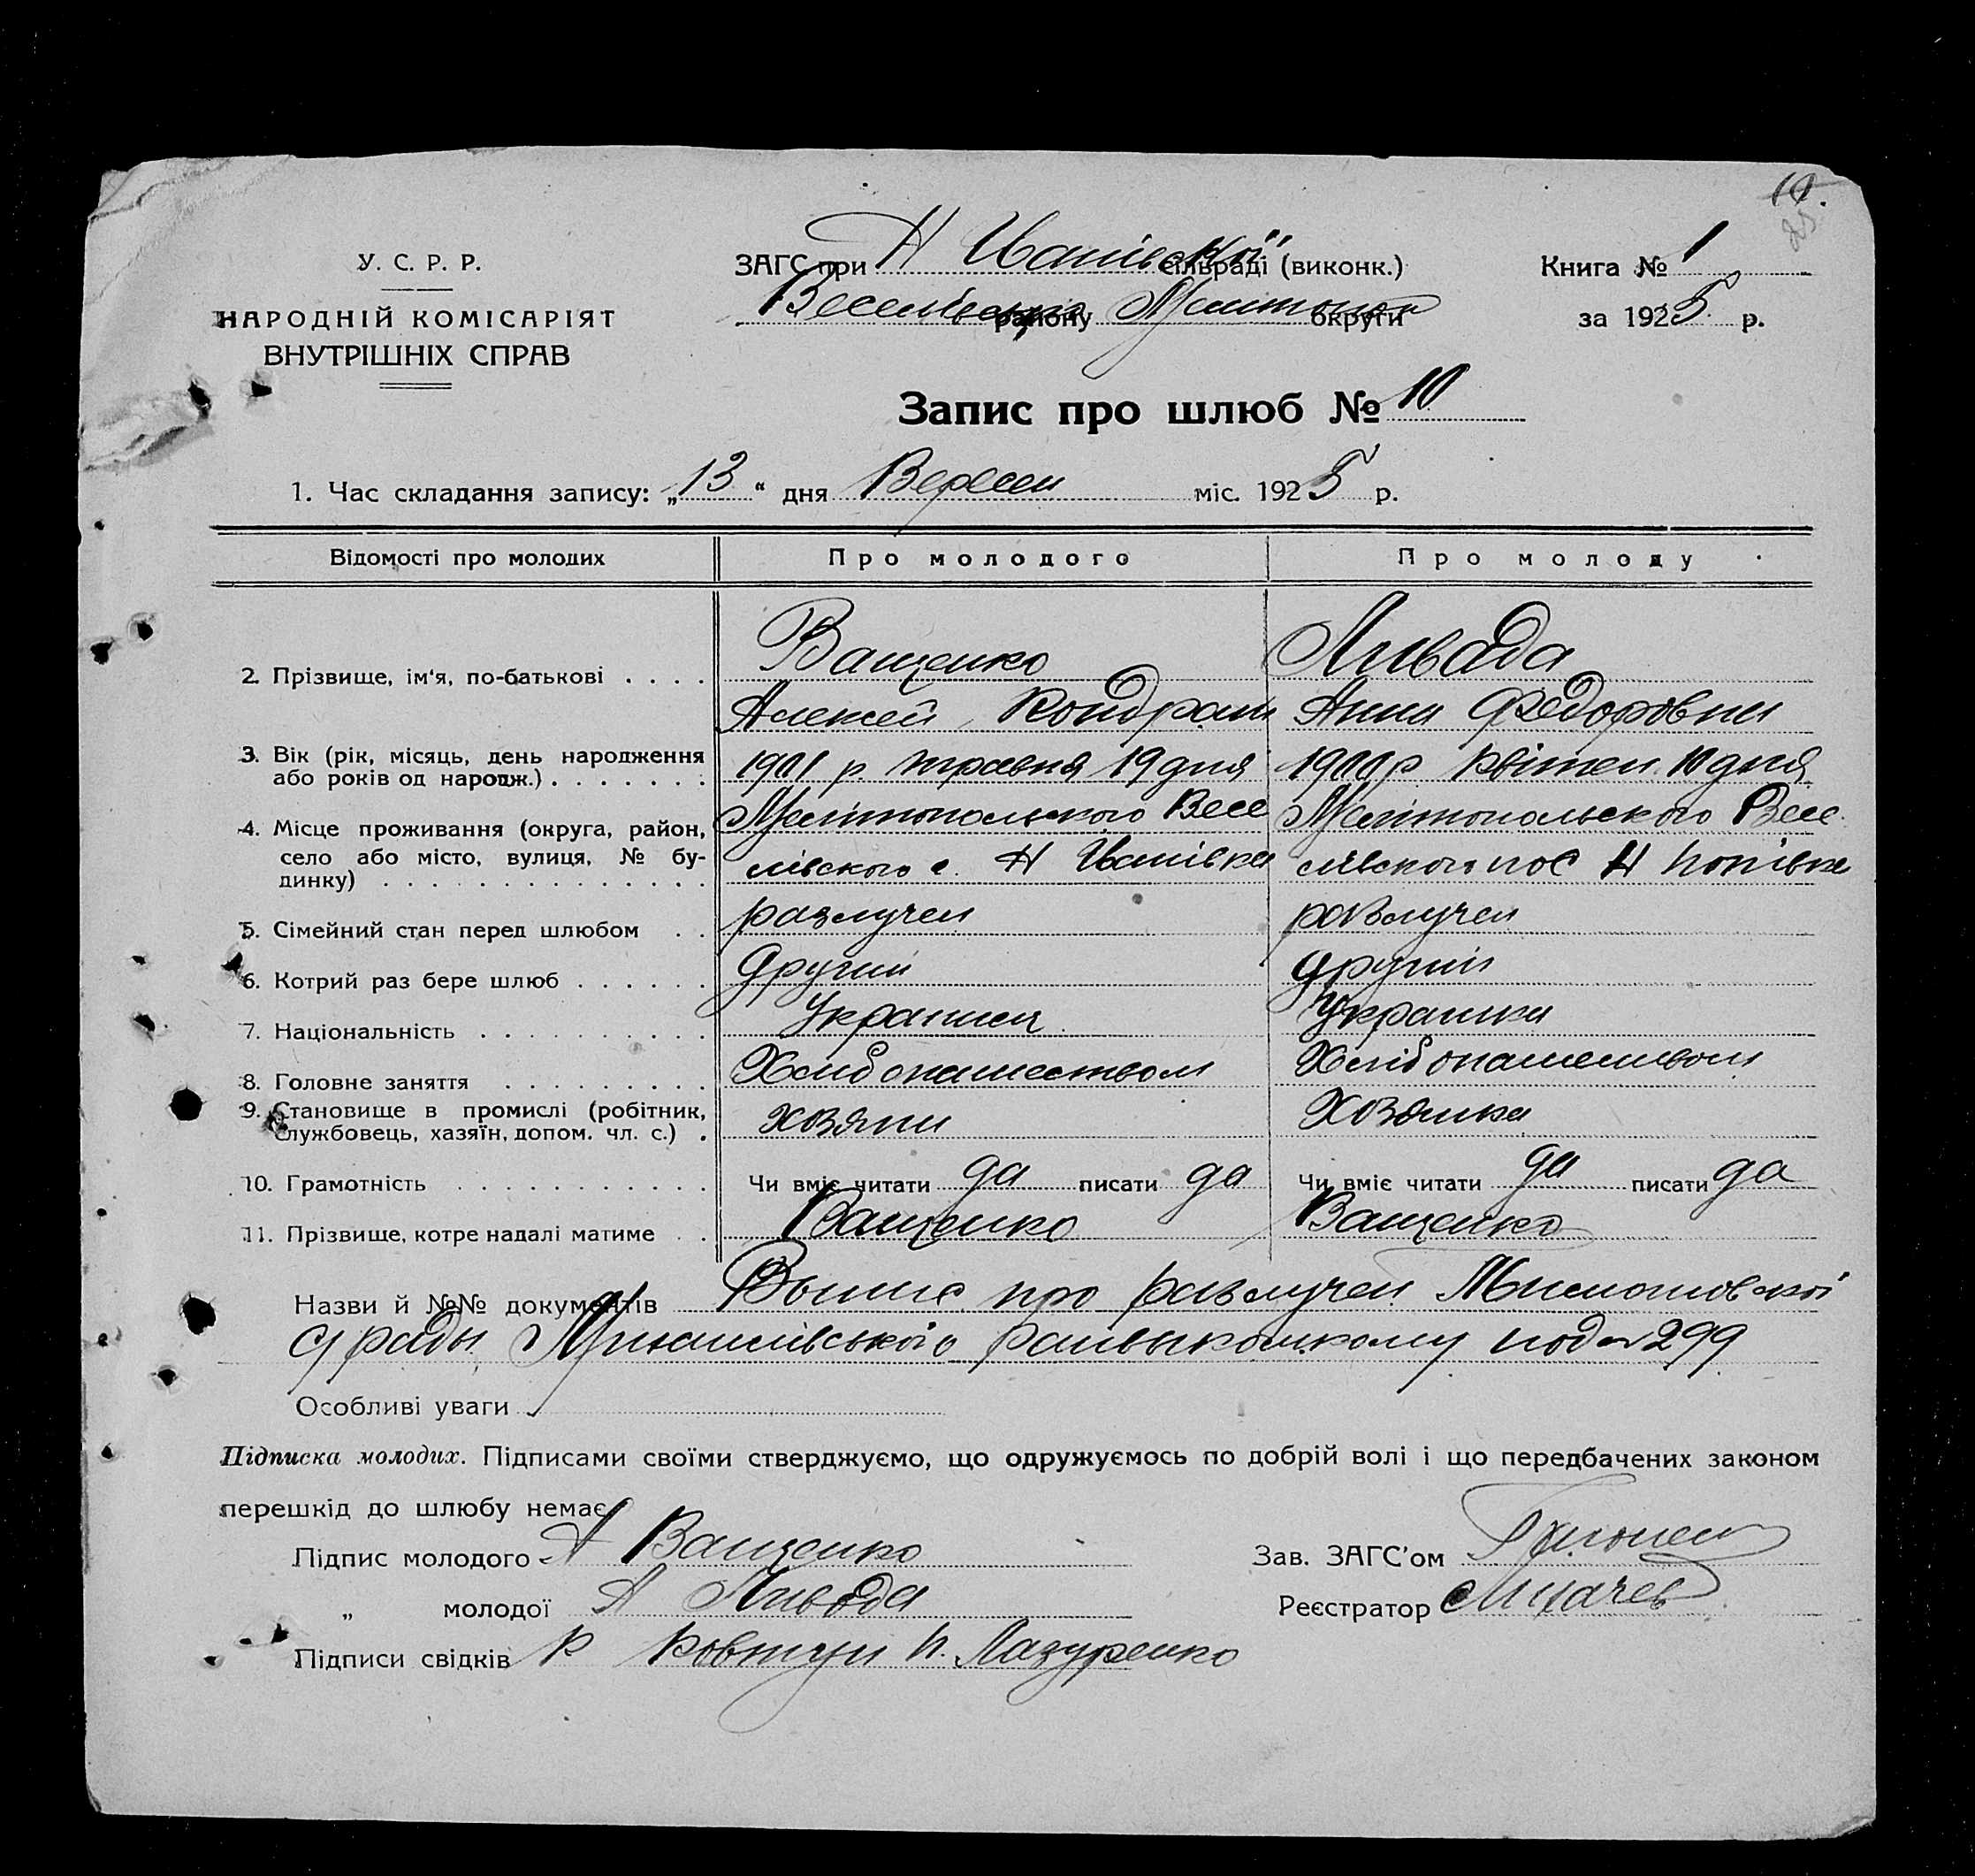 14.
25
У. С. Р. Р.
НАРОДНІЙ КОМІСАРІЯТ
ВНУТРІШНІХ СПРАВ
ЗАГС при Н Іванівскої сільраді (виконк.)
району округи
Книга № 1
за 1925 р.
Запис про шлюб № 10
1. Час складання запису: „13“ дня Вересен міс. 1925 р.
Відомості про молодих Про молодого Про молоду
2. Прізвище, ім'я, по-батькові . . . . Ващенко Ливада
Алексей Кондрат Анна Федоровна
3. Вік (рік, місяць, день народження 1901 р травня 19 дня 1900 р квітен 10 дня
або років од народж.) . . . . . . .
4. Місце проживання (округа, район, Мелітопольского Весе Мелітопольского Весе
село або місто, вулиця, № бу- лівского с. Н Іванівка лівского пос Н
динку) . . . . . . . . . . . . . .
5. Сімейний стан перед шлюбом . . разлучен розлучен
6. Котрий раз бере шлюб . . . . . . другий другий
7. Національність . . . . . . . . . . Украинец Украинка
8. Головне заняття . . . . . . . . . Хлибопашеством Хлібопашеством
9. Становище в промислі (робітник, хозяин Хозяика
службовець, хазяїн, допом. чл. с.) .
10. Грамотність . . . . . . . . . . . Чи вміє читати да писати да Чи вміє читати да писати да
11. Прізвище, котре надалі матиме . . Ващенко Ващенко
Назви й №№ документів Выпис про разлучен
с/рады под № 299
Особливі уваги
Підписка молодих. Підписами своїми стверджуємо, що одружуємось по добрій волі і що передбачених законом
перешкід до шлюбу немає
Підпис молодого А Ващенко
Зав. ЗАГС'ом
„ молодої А Ливада
Реєстратор Лихачев
Підписи свідків К Ковтун П. Лазуренко